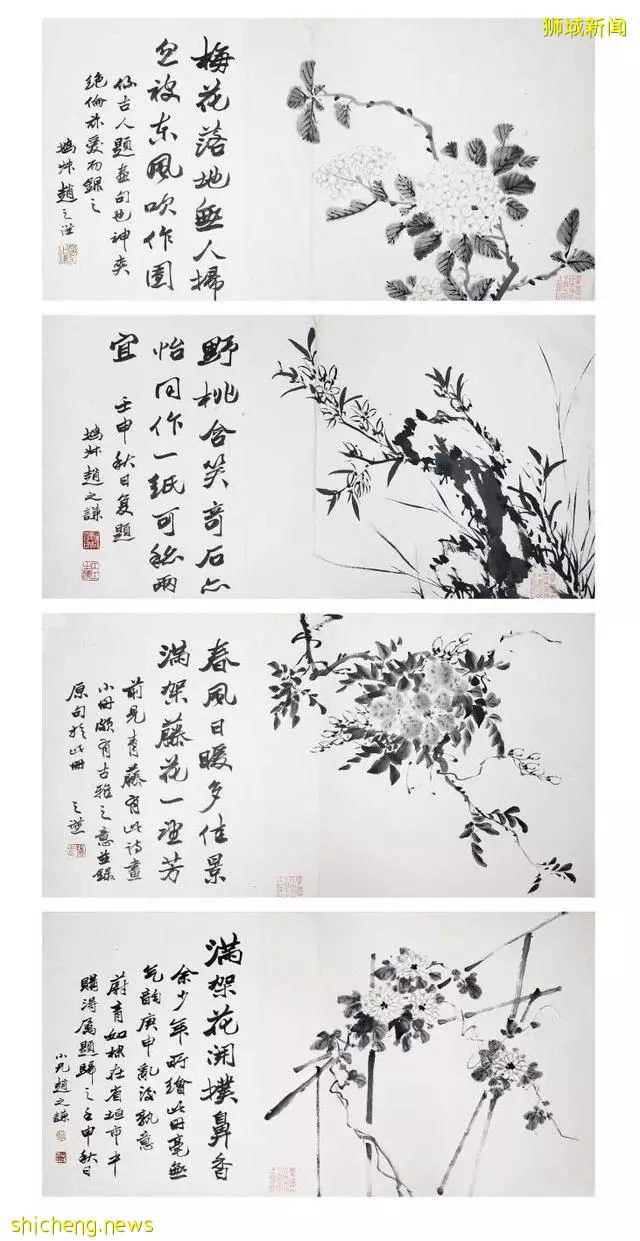 狮城新闻
梅花落地無人掃
忽被東風吹作團
仿古人題畫句也神爽
絶倫亦愛而録之
撝叔趙之謙
野桃含笑奇石亦
怡同作一紙可稱兩
宜
壬申秋日复題
撝叔趙之謙
春風日暖多佳景
滿架藤花一望芳
前見青藤有此詩畫
小冊頗有古雅之意並録
原句於此冊
之謙
滿架花開撲鼻香
余少年所繪此冊毫無
气韵庚申亂後孰意
蔚青如棣在省垣市中
購得屬題歸之壬申秋日
小兄趙之謙
shicheng.news